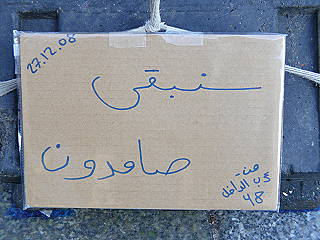 27.12.08
سنبقى
صامدون
من
عرب الداخل
48